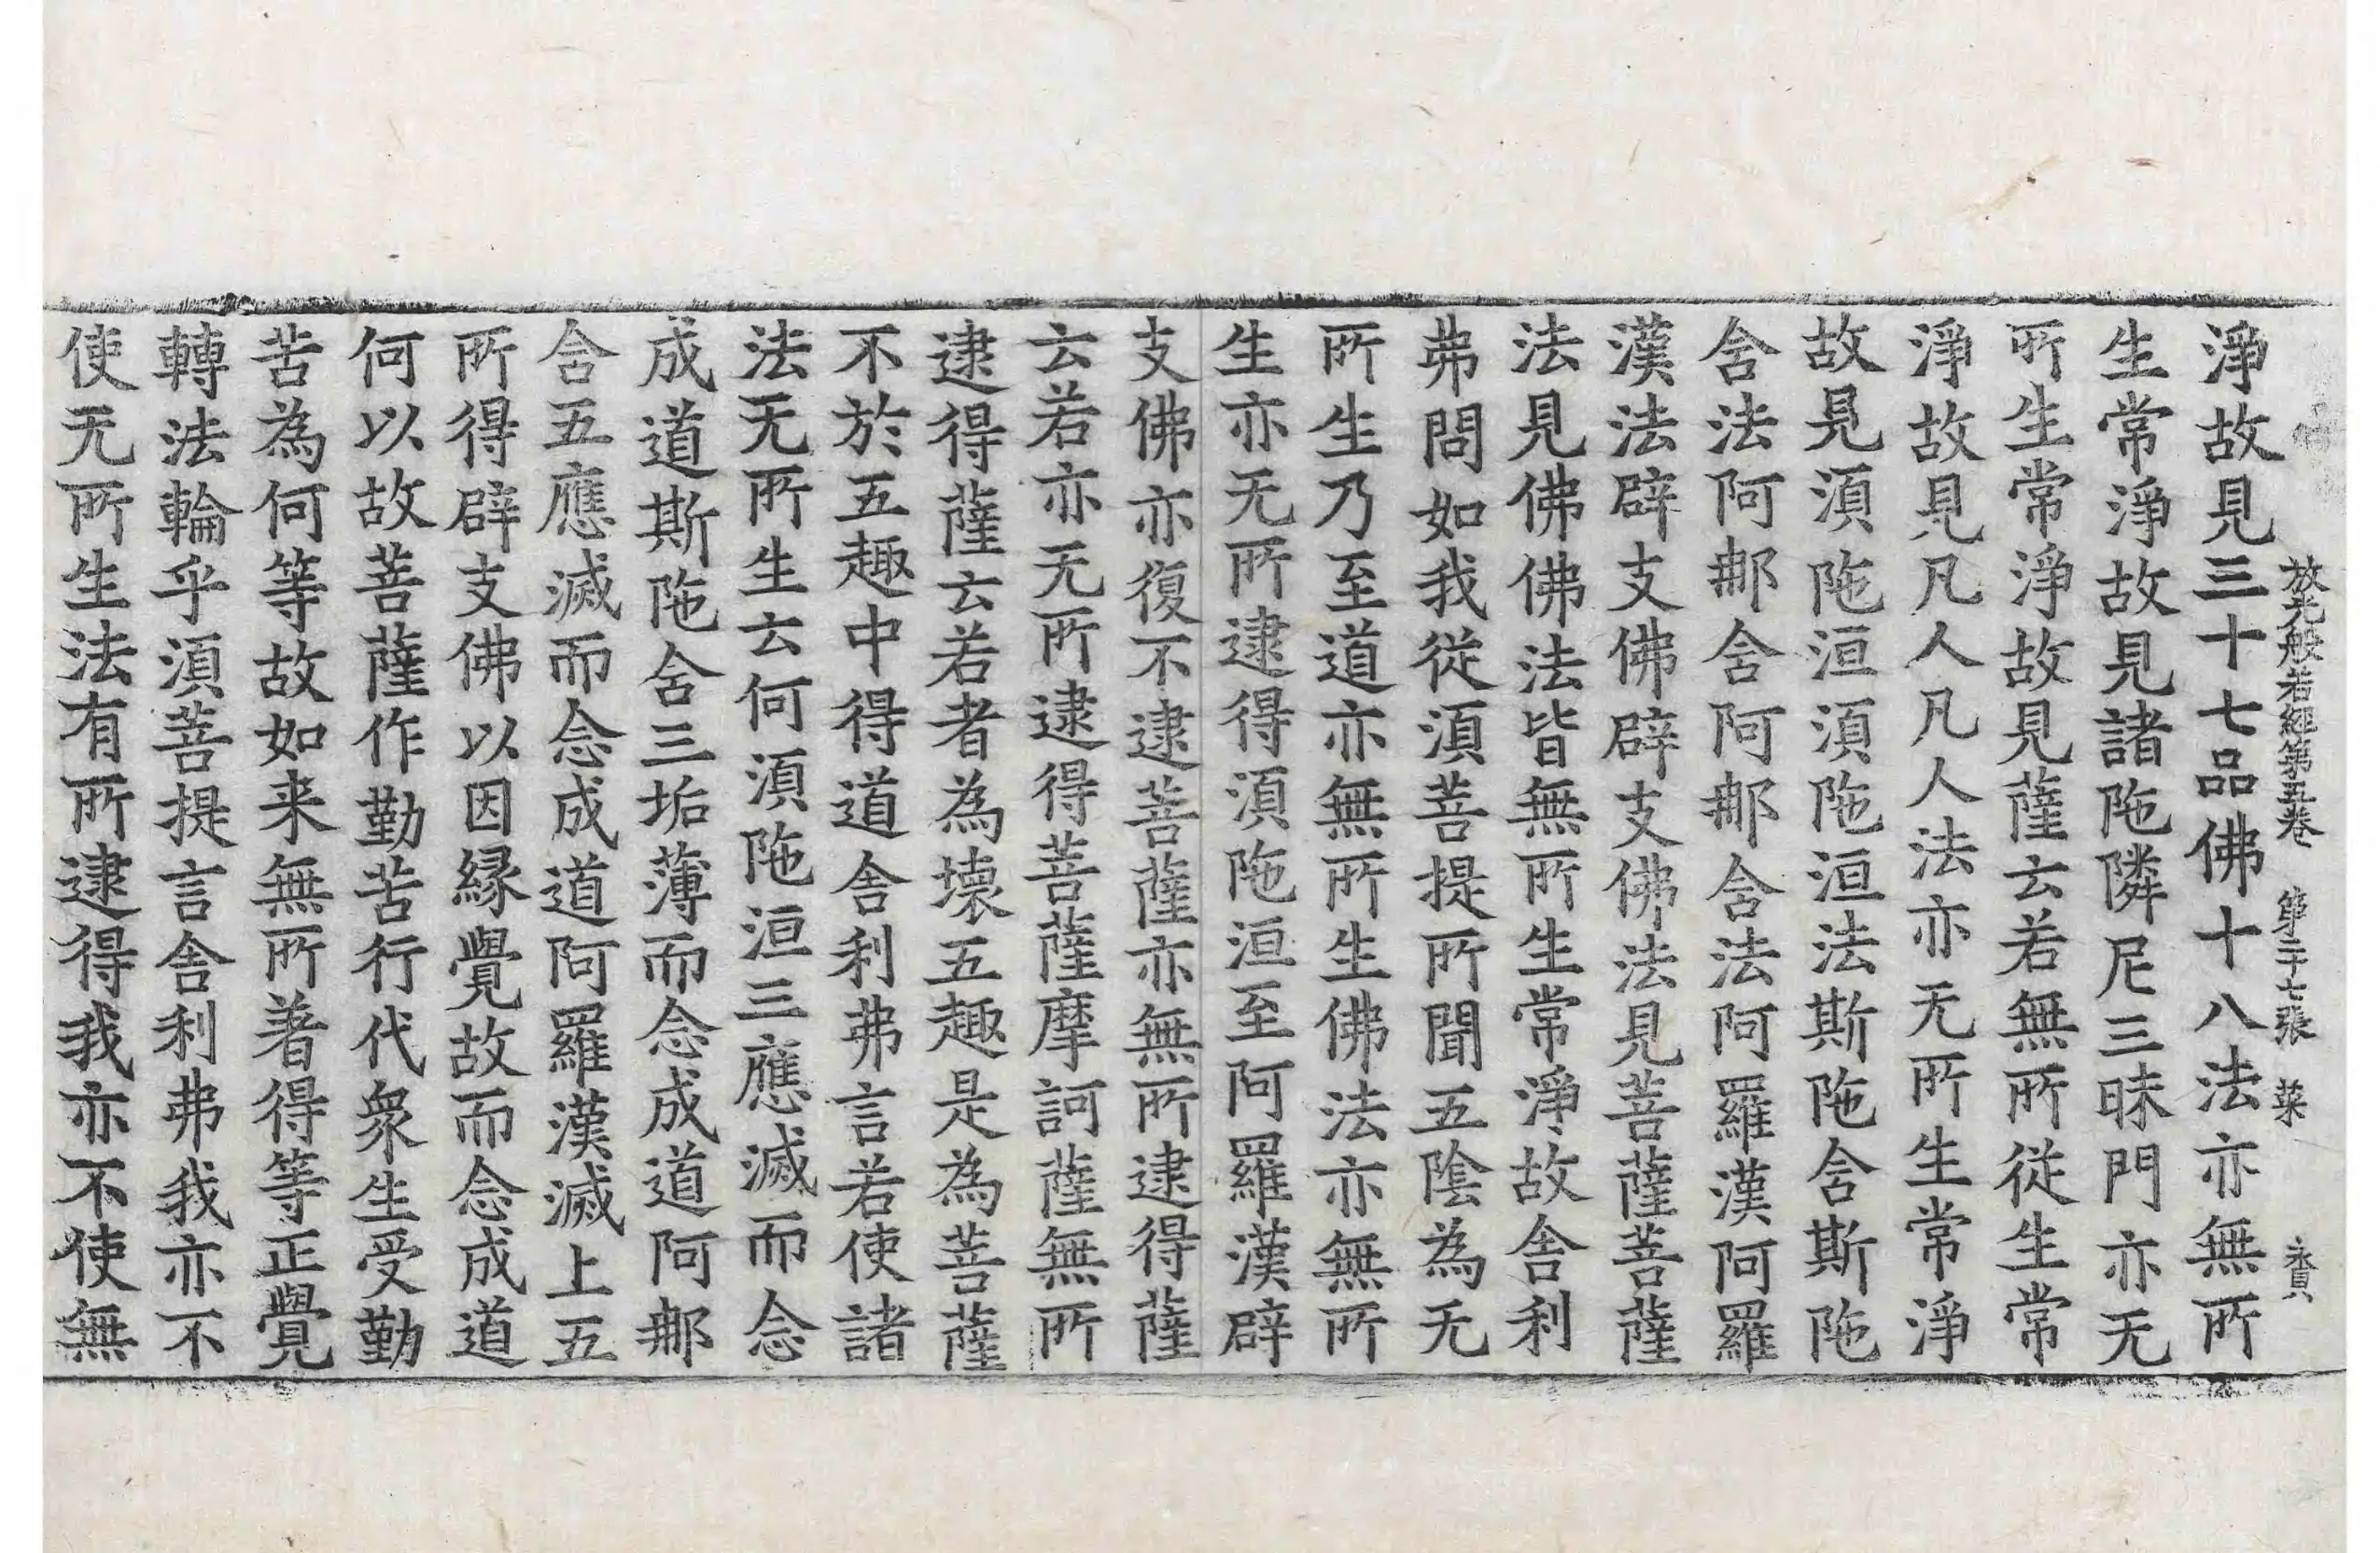 放光般若經第五卷 第二十七張 菜 永貢
淨故見三十七品佛十八法亦無所
生常淨故見諸陁隣尼三昧門亦无
所生常淨故見薩云若無所從生常
淨故見凡人凡人法亦无所生常淨
故見湏陁洹湏陁洹法斯陁含斯陁
含法阿那含阿那含法阿羅漢阿羅
漢法辟支佛辟支佛法見菩薩菩薩
法見佛佛法皆無所生常淨故舍利
弗問如我從湏菩提所聞五陰為无
所生乃至道亦無所生佛法亦無所
生亦无所逮得湏陁洹至阿羅漢辟
支佛亦復不逮菩薩亦無所逮得薩
云若亦无所逮得菩薩摩訶薩無所
逮得薩云若者為壞五趣是為菩薩
不於五趣中得道舍利弗言若使諸
法无所生云何湏陁洹三應滅而念
成道斯陁含三垢薄而念成道阿那
含五應滅而念成道阿羅漢滅上五
所得辟支佛以因緣覺故而念成道
何以故菩薩作勤苦行代衆生受勤
苦為何等故如来無所著得等正覺
轉法輪乎湏菩提言舍利弗我亦不
使无所生法有所逮得我亦不使無